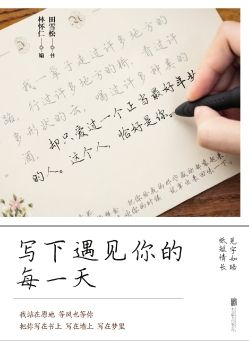 田雪松 书
林怀仁 编
我一辈子走过许多地方的
路，行过许多地方的桥，看过许
多形状的云，喝过许多种类的
酒，
却只爱过一个正当最好年龄
的人。
这个人，恰好是你。
写下遇见你的
每一天
见字如晤
纸短情长
我站在原地 等风也等你
把你写在书上 写在墙上 写在梦里